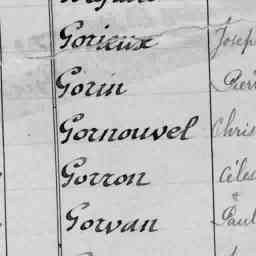 Gorieux Josep
Gorin Pierr
Gornouvel Chris
Gorron Céles
Gorvan Paul